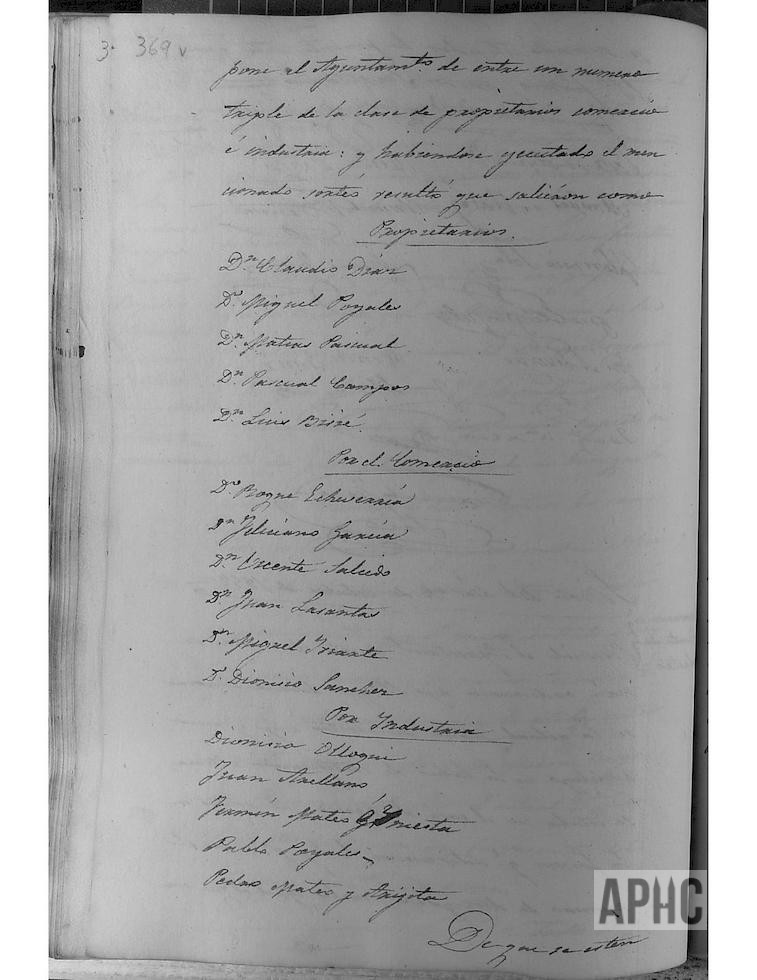 3- 369 v
pone el Ayuntamto. de entre un numero
triple de la clase de propietarios comercio
é industria: y habiendose egecutado el men
cionado sorteo resultó que salieron como
Propietarios.
Dn. Claudio Diaz
Dn. Miguel Poyales
Dn. Matias Pascual
Dn. Pascual Campos
Dn. Luis Bisié.
Por el Comercio
Dn. Roque Echeverria
Dn. Feliciano Garcia
Dn. Vicente Salcedo
Dn. Juan Lasantas
Dn. Miguel Iriarte
D. Dionisio Sanchez
Por Industria
Dionisio Olloqui
Juan Arellano
Fermín Mateo
Pablo Poyales
Pedro Mateo y Arijita
De que se esten
APHC